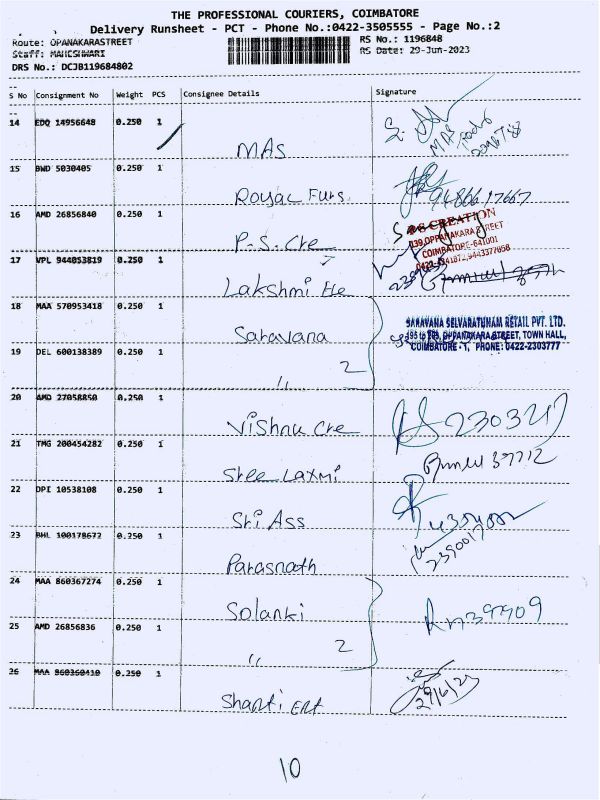 THE PROFESSIONAL COURIERS, COIMBATORE
Delivery Runsheet - PCT - Phone No.:0422-3505555 - Page No.:2
Route: OPANAKARASTREET RS No.: 1196848
Staff: MAHESHWARI RS Date: 29-Jun-2023
DRS No.: DCJB119684802
S No Consignment No Weight PCS Consignee Details Signature
14 EDQ 14956648 0.250 1 MAs
15 BWD 5030405 0.250 1 Royal Furs 9486617667
16 AMD 26856840 0.250 1 P.S. Cre
S CREATION
139, OPPANAKARA STREET
COIMBATORE-641001
17 VPL 944053819 0.250 1 Lakshmi Ele
18 MAA 570953418 0.250 1 Saravana
SARAVANA SELVARATHNAM RETAIL PVT. LTD.
OPPANAKARA STREET, TOWN HALL,
COIMBATORE - 1, PHONE: 0422-2303777
19 DEL 600138389 0.250 1 " 2
20 AMD 27058850 0.250 1 Vishnu Cre 230321
21 TMG 200454282 0.250 1 Sree Laxmi
22 DPI 10538108 0.250 1 Sri Ass
23 BHL 100178672 0.250 1 Parasnath 2390017
24 MAA 860367274 0.250 1 Solanki
25 AMD 26856836 0.250 1 " 2
26 MAA 860360410 0.250 1 Shanti Ent 29/6/23
10